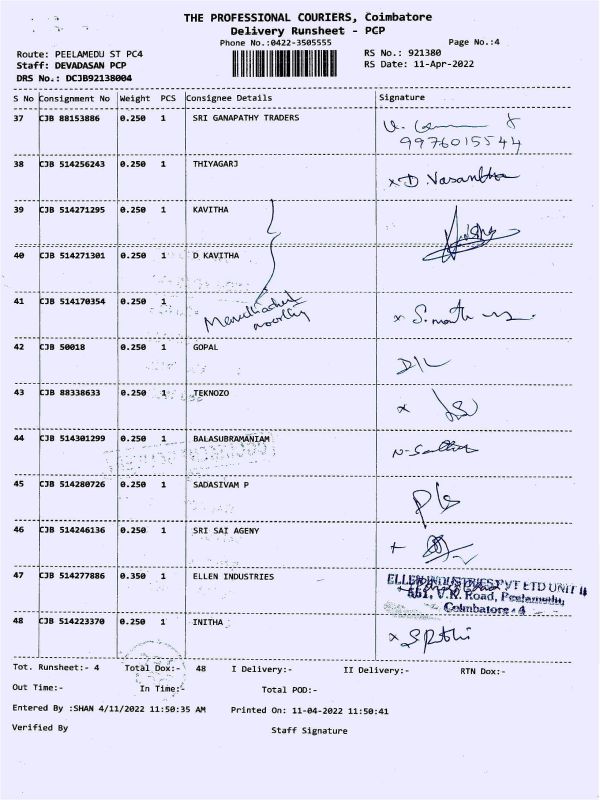 THE PROFESSIONAL COURIERS, Coimbatore
Delivery Runsheet - PCP
Phone No.:0422-3505555
Page No.:4
Route: PEELAMEDU ST PC4
RS No.: 921380
Staff: DEVADASAN PCP
RS Date: 11-Apr-2022
DRS No.: DCJB92138004
S No Consignment No Weight PCS Consignee Details Signature
37 CJB 88153886 0.250 1 SRI GANAPATHY TRADERS
9976015544
38 CJB 514256243 0.250 1 THIYAGARJ x D. Vasantha
39 CJB 514271295 0.250 1 KAVITHA
40 CJB 514271301 0.250 1 D KAVITHA
41 CJB 514170354 0.250 1
42 CJB 50018 0.250 1 GOPAL D/L
43 CJB 88338633 0.250 1 TEKNOZO x
44 CJB 514301299 0.250 1 BALASUBRAMANIAM
45 CJB 514280726 0.250 1 SADASIVAM P
46 CJB 514246136 0.250 1 SRI SAI AGENY
47 CJB 514277886 0.350 1 ELLEN INDUSTRIES ELLEN INDUSTRIES PVT LTD UNIT II
551, V.K. Road, Peelamedu,
Coimbatore - 4
48 CJB 514223370 0.250 1 INITHA x
Tot. Runsheet:- 4 Total Dox:- 48 I Delivery:- II Delivery:- RTN Dox:-
Out Time:- In Time:- Total POD:-
Entered By :SHAN 4/11/2022 11:50:35 AM Printed On: 11-04-2022 11:50:41
Verified By Staff Signature